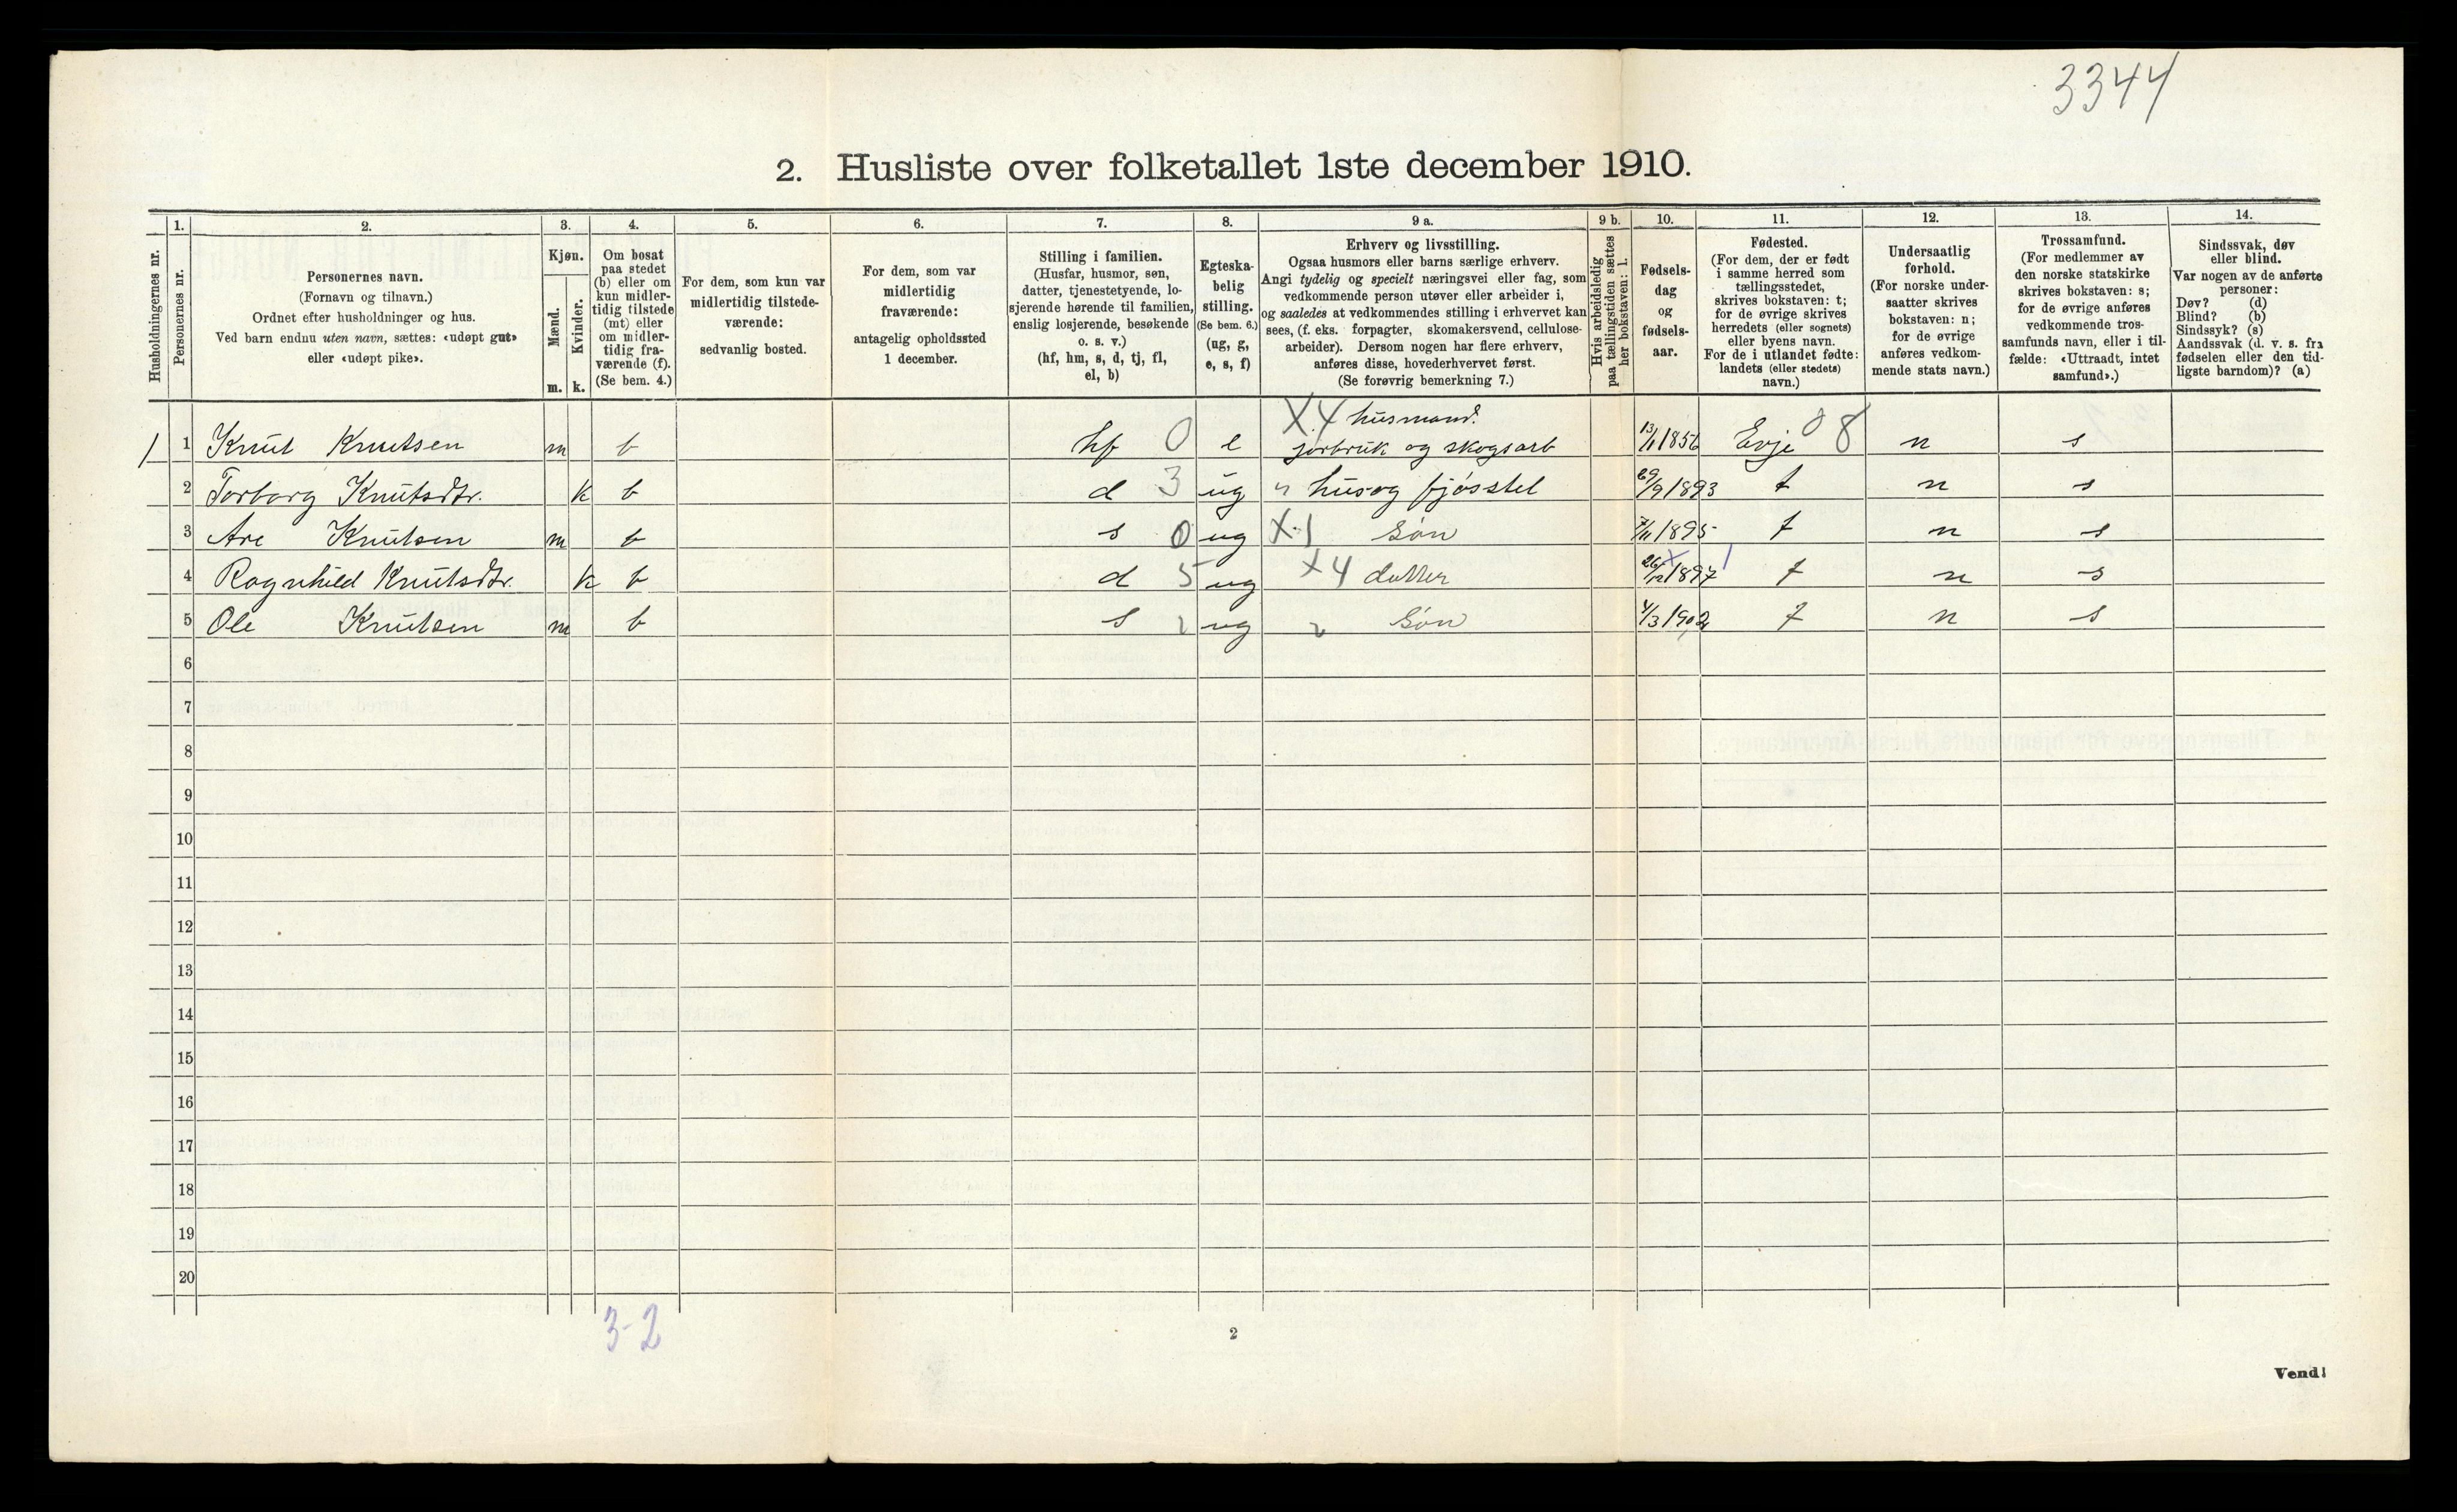 3344
2. Husliste over folketallet 1ste december 1910.
Husholdningernes nr.
1. Personernes nr.
2. Personernes navn.
(Fornavn og tilnavn.)
Ordnet efter husholdninger og hus.
Ved barn endnu uten navn, sættes: «udøpt gut»
eller «udøpt pike».
3. Kjøn.
Mænd. m.
Kvinder. k.
4. Om bosat
paa stedet
(b) eller om
kun midler-
tidig tilstede
(mt) eller
om midler-
tidig fra-
værende (f).
(Se bem. 4.)
5. For dem, som kun var
midlertidig tilstede-
værende:
sedvanlig bosted.
6. For dem, som var
midlertidig
fraværende:
antagelig opholdssted
1 december.
7. Stilling i familien.
(Husfar, husmor, søn,
datter, tjenestetyende, lo-
sjerende hørende til familien,
enslig losjerende, besøkende
o. s. v.)
(hf, hm, s, d, tj, fl,
el, b)
8. Egteska-
belig
stilling.
(Se bem. 6.)
(ug, g,
e, s, f)
9 a. Erhverv og livsstilling.
Ogsaa husmors eller barns særlige erhverv.
Angi tydelig og specielt næringsvei eller fag, som
vedkommende person utøver eller arbeider i,
og saaledes at vedkommendes stilling i erhvervet kan
sees, (f. eks. forpagter, skomakersvend, cellulose-
arbeider). Dersom nogen har flere erhverv,
anføres disse, hovederhvervet først.
(Se forøvrig bemerkning 7.)
9 b. Hvis arbeidsledig
paa tællingstiden sættes
her bokstaven: l.
10. Fødsels-
dag
og
fødsels-
aar.
11. Fødested.
(For dem, der er født
i samme herred som
tællingsstedet,
skrives bokstaven: t;
for de øvrige skrives
herredets (eller sognets)
eller byens navn.
For de i utlandet fødte:
landets (eller stedets)
navn.)
12. Undersaatlig
forhold.
(For norske under-
saatter skrives
bokstaven: n;
for de øvrige
anføres vedkom-
mende stats navn.)
13. Trossamfund.
(For medlemmer av
den norske statskirke
skrives bokstaven: s;
for de øvrige anføres
vedkommende tros-
samfunds navn, eller i til-
fælde: «Uttraadt, intet
samfund».)
14. Sindssvak, døv
eller blind.
Var nogen av de anførte
personer:
Døv? (d)
Blind? (b)
Sindssyk? (s)
Aandssvak (d. v. s. fra
fødselen eller den tid-
ligste barndom)? (a)
X.4 husmand.
1 1 Knut Knutsen m b hf 0 e jorbruk og skogsarb 13/11 1856 Evje 8 n s
2 Torborg Knutsdtr. k b d 3 ug hus og fjøsstel 29/9 1893 t n s
3 Are Knutsen m b s 0 ug X.1 Søn 7/11 1895 t n s
4 Ragnhild Knutsdtr. k b d 5 ug X4 datter 26/12 1897 t n s
5 Ole Knutsen m b s ug Søn 4/3 1902 t n s
6
7
8
9
10
11
12
13
14
15
16
17
18
19
20
3-2
2
Vend!